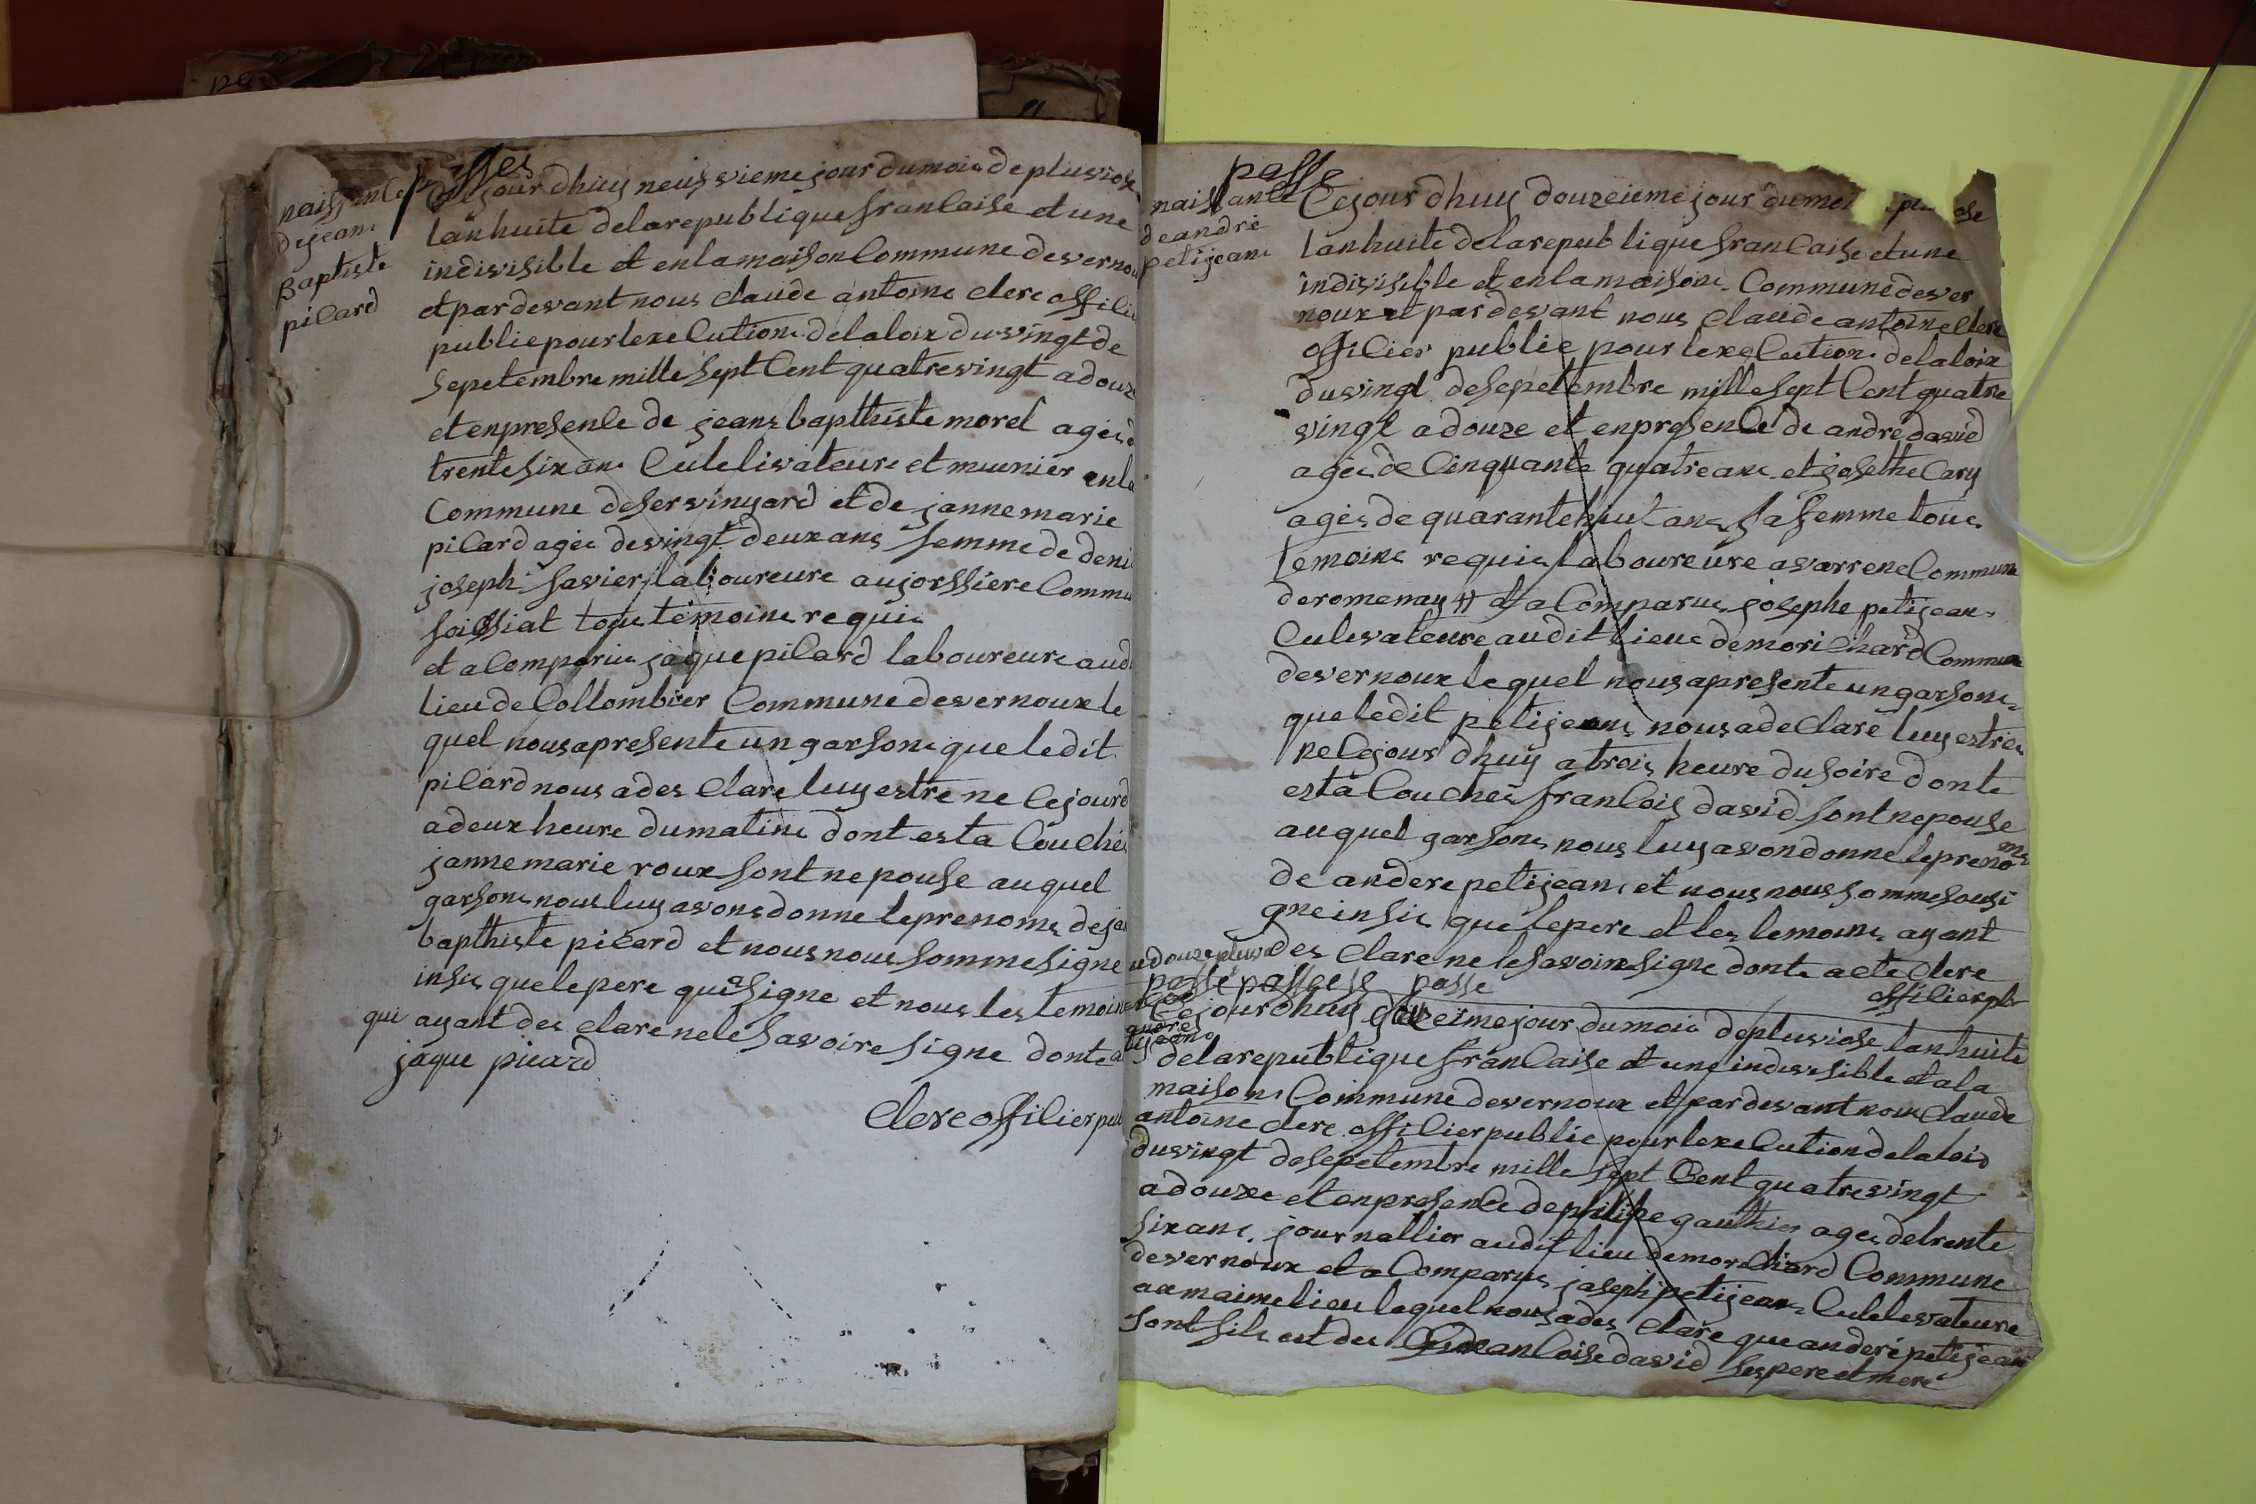 naissance
de jean
Baptiste
picard
passes
Cejour dhuy neuf vieme jour du mois de pluviose
lan huite de la republique francaise et une
indivisible et en la maison Commune de vernou
et par devant nous claude antoine clerc officie
public pour lexecution de la loix du vingt de
sepetembre mille sept Cent quatre vingt a douz
et en presence de jean bapthiste morel agee d
trente six ans Cultelivateure et munier en la
Commune de servinyard et de janne marie
picard agee de vingt deux ans femme de deni
joseph savier laboureure au jorssiere Commu
soissiat tous temoins requis
et a Comparus jaque picard laboureure aud
lieu de Collombier Commune de vernoux le
quel nous a presente un garsone que le dit
picard nous a des clare luy estre ne Cejourd
a deux heure du matine dont est a Couchée
janne marie roux sont nepouse auquel
garsone nous luy avons donne le prenoms de ja
bapthiste picard et nous nous somme signe
insis que le pere qui signe et nous les temoin
qui ayant des clare ne le savoire signe donte a
jaque picard
clerc officier pub
passe
naissance
de andre
petijean
Cejour dhuy douzeieme jour du moi plu ose
lan huite de la republique francaise et une
indivisible et en la maisone Commune de ver
noux et par devant nous claude antoine clerc
officier public pour lexecution de la loix
du vingt de sepetembre mille sept Cent quatre
vingt a douze et en presence de andre david
agee de Cinquante quatre ans et josethe Cary
agee de quarante huit ans sa femme tous
temoins requis laboureure a varrene Commune
de romenay et a Comparus josephe petijean
Culevateure au dit lieu de morichard Commune
de vernoux lequel nous a presente un garsone
que le dit petijean nous a de clare luy estre
ne Cejour dhuy a trois heure du soire donte
est a Couchée francois david sont nepouse
auquel garsone nous luy avon donne le prenoms
de andere petijean et nous nous somme sousi
gne insis que le pere et les temoins ayant
des clare ne le savoire signe donte acte clerc
officier pb
passe passe passe
Cejour dhuy douzeime jour du mois de pluviose lan huite
de la republique francaise et une indivisible et a la
maisone Commune de vernoux et par devant nous claude
antoine clerc officier public pour lexecution de la loix
du vingt de sepetembre mille sept Cent quatre vingt
a douze et en presence de philipe gauthier agee de trente
six ans journallier au dit lieu de morichard Commune
de vernoux et a Comparus joseph petijean Cultelevateure
au maime lieu lequel nous a des clare que andere petijean
sont fils est des francoise david ses pere et mere